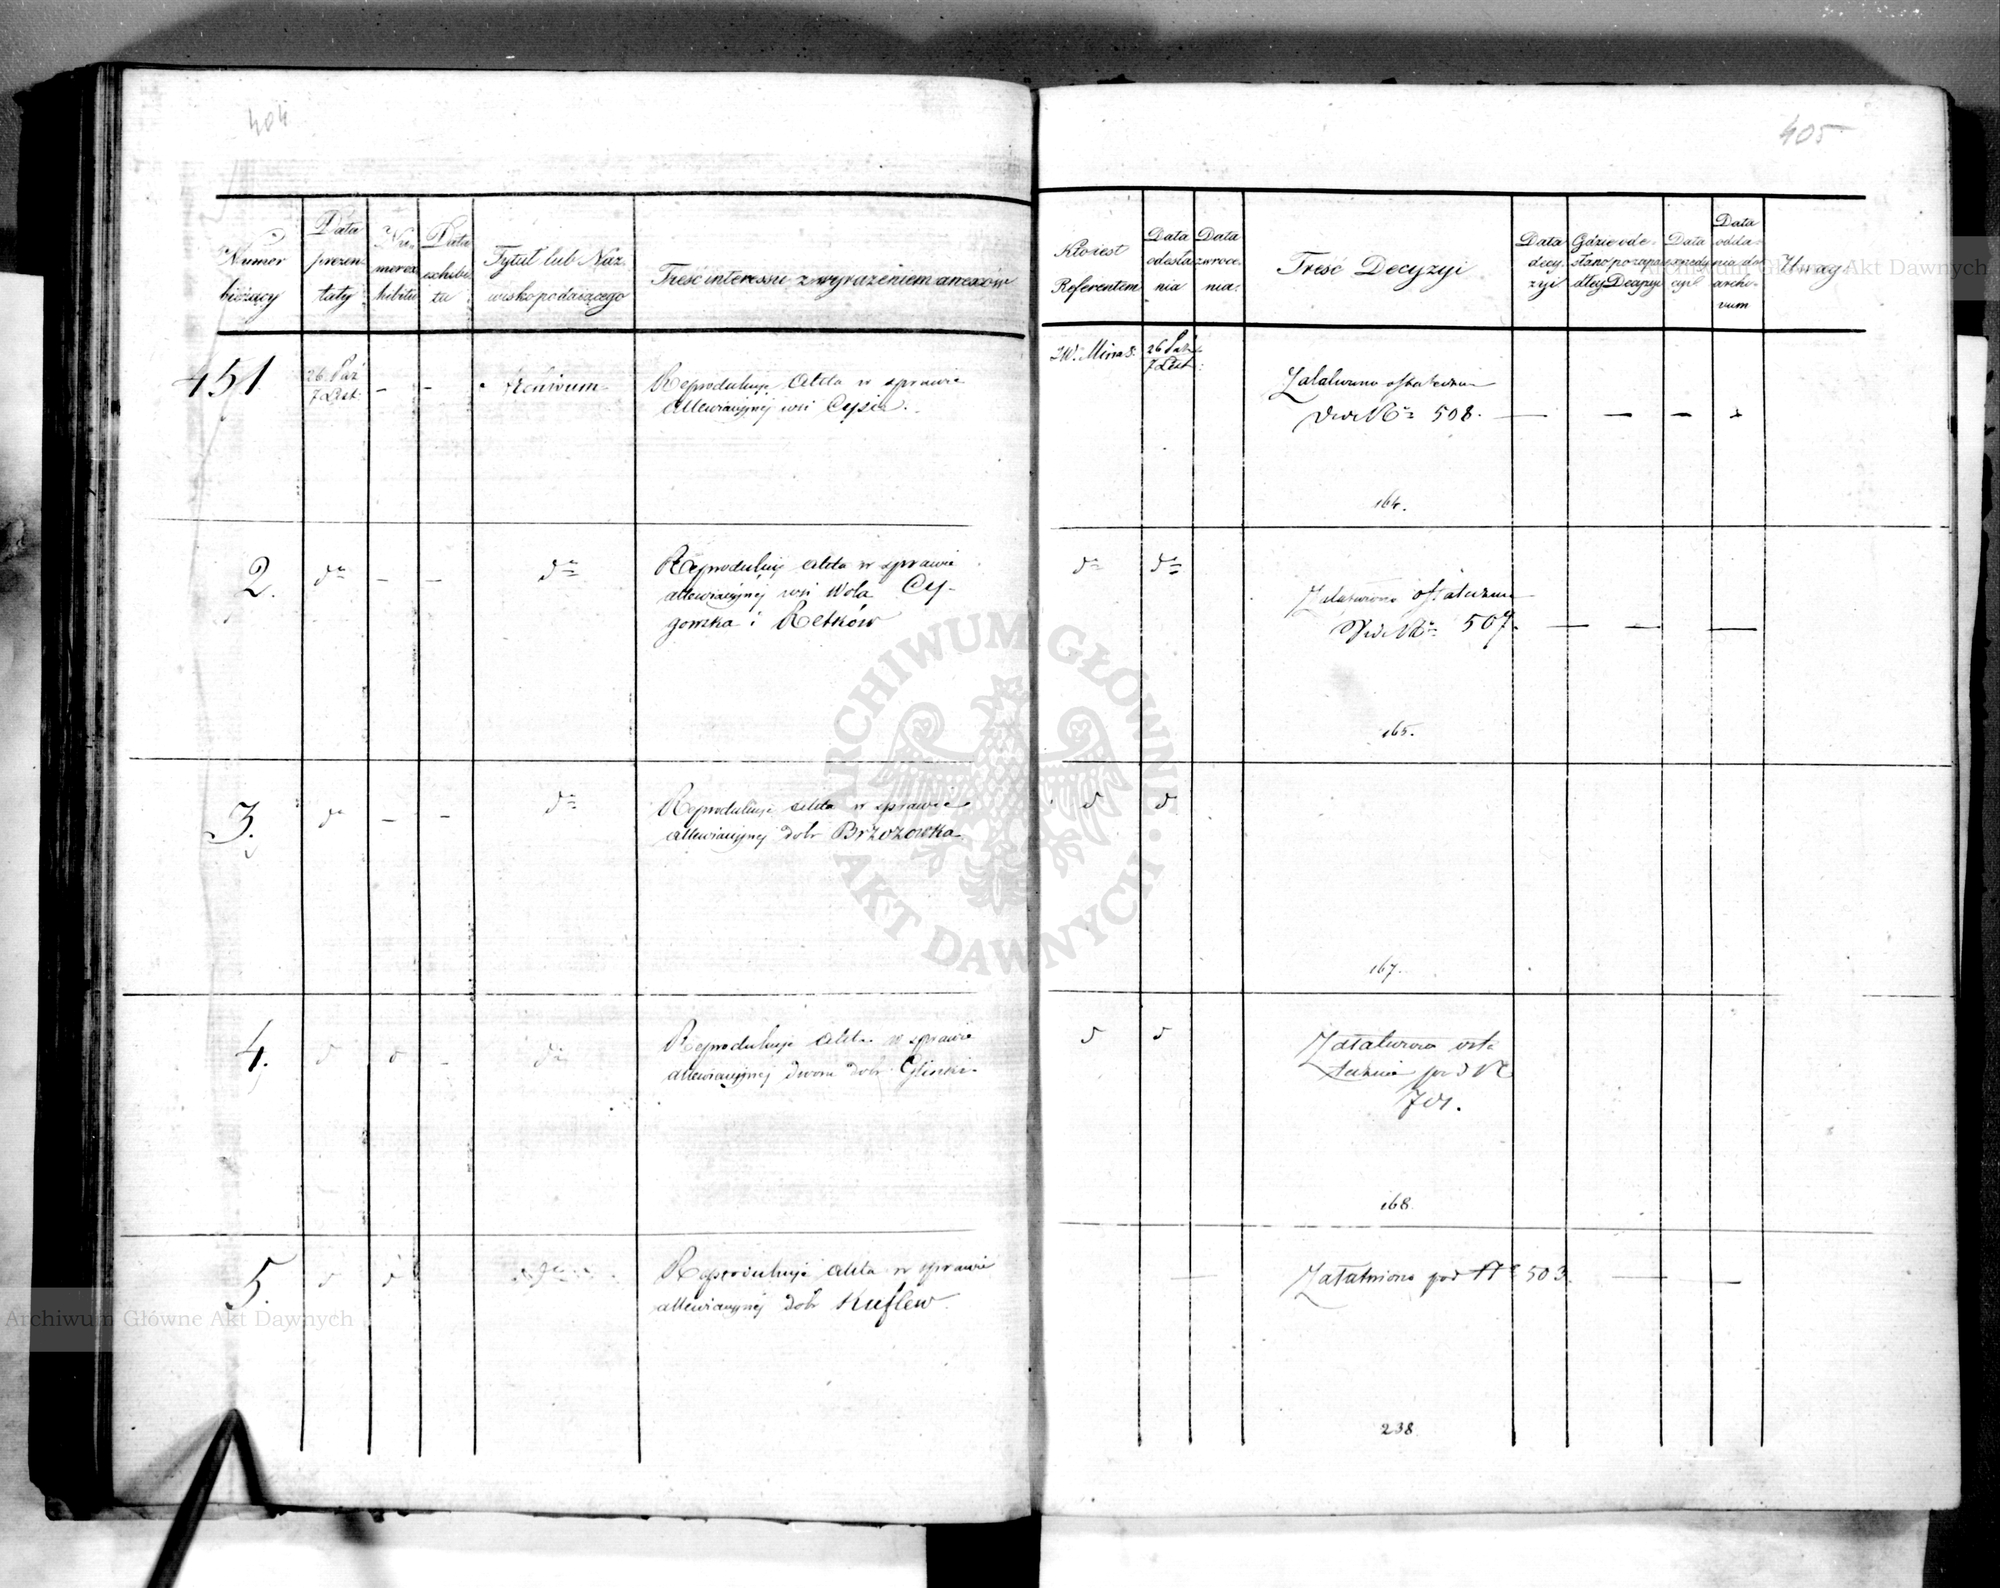 404
Numer
bieżący
Data
prezen
taty
Nu-
merex
hibitu
Data
exhibi
tu
Tytuł lub Naz
wisko podaiącego
Treść interessu z wyrażeniem anexów
451
26. Paź
7 List:
-
-
Archiwum
Reprodukuje Akta w sprawie
allewiacyjnéj wsi Cysie.
2.
do
-
-
do
Reprodukuje Akta w sprawie
allewiacyjnéj wsi Wola Cy-
gowska i Retków
3.
do
-
-
do
Reprodukuje Akta w sprawie
allewiacyjnej dobr Brzozowka
4.
d
d
-
do
Reprodukuje Akta w sprawie
allewiacyjnej dobr Glinki
5.
d
d
Reprodukuje Akta w sprawie
allewiacyjnéj dobr Kuflew.
405
Kto iest
Referentem
Data
odesła
nia
Data
zwroce
nia.
Treść Decyzyi
Data
decy-
zyi
Gdzie ode-
słano po zapa
dłey Decyzyi
Data
expedy
cyi
Data
odda-
nia do
archi-
wum
Uwagi
W. Minas:
26 Paź
7 List:
Załatwiono ostatecznie
Vide No 508.
164.
do
do
Załatwiono ostatecznie
Vide No 507.
165.
d
d
167.
d
d
Załatwiono osta
tecznie pod No
701.
168.
Załatwiono pod No 503.
238.
ARCHIWUM GŁÓWNE AKT DAWNYCH
Archiwum Główne Akt Dawnych
Archiwum Główne Akt Dawnych